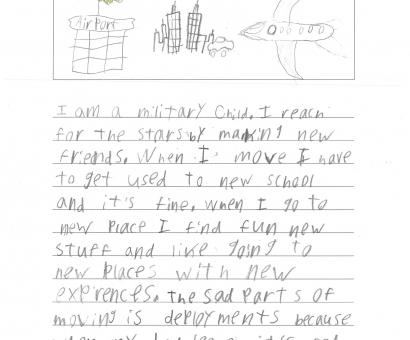 Airport
I am a military Child. I reach
for the stars by making new
friends. When I move I have
to get used to new school
and it's fine. when I go to
new place I find fun new
stuff and like going to
new places with new
expirences. the sad parts of
moving is deployments because
when my